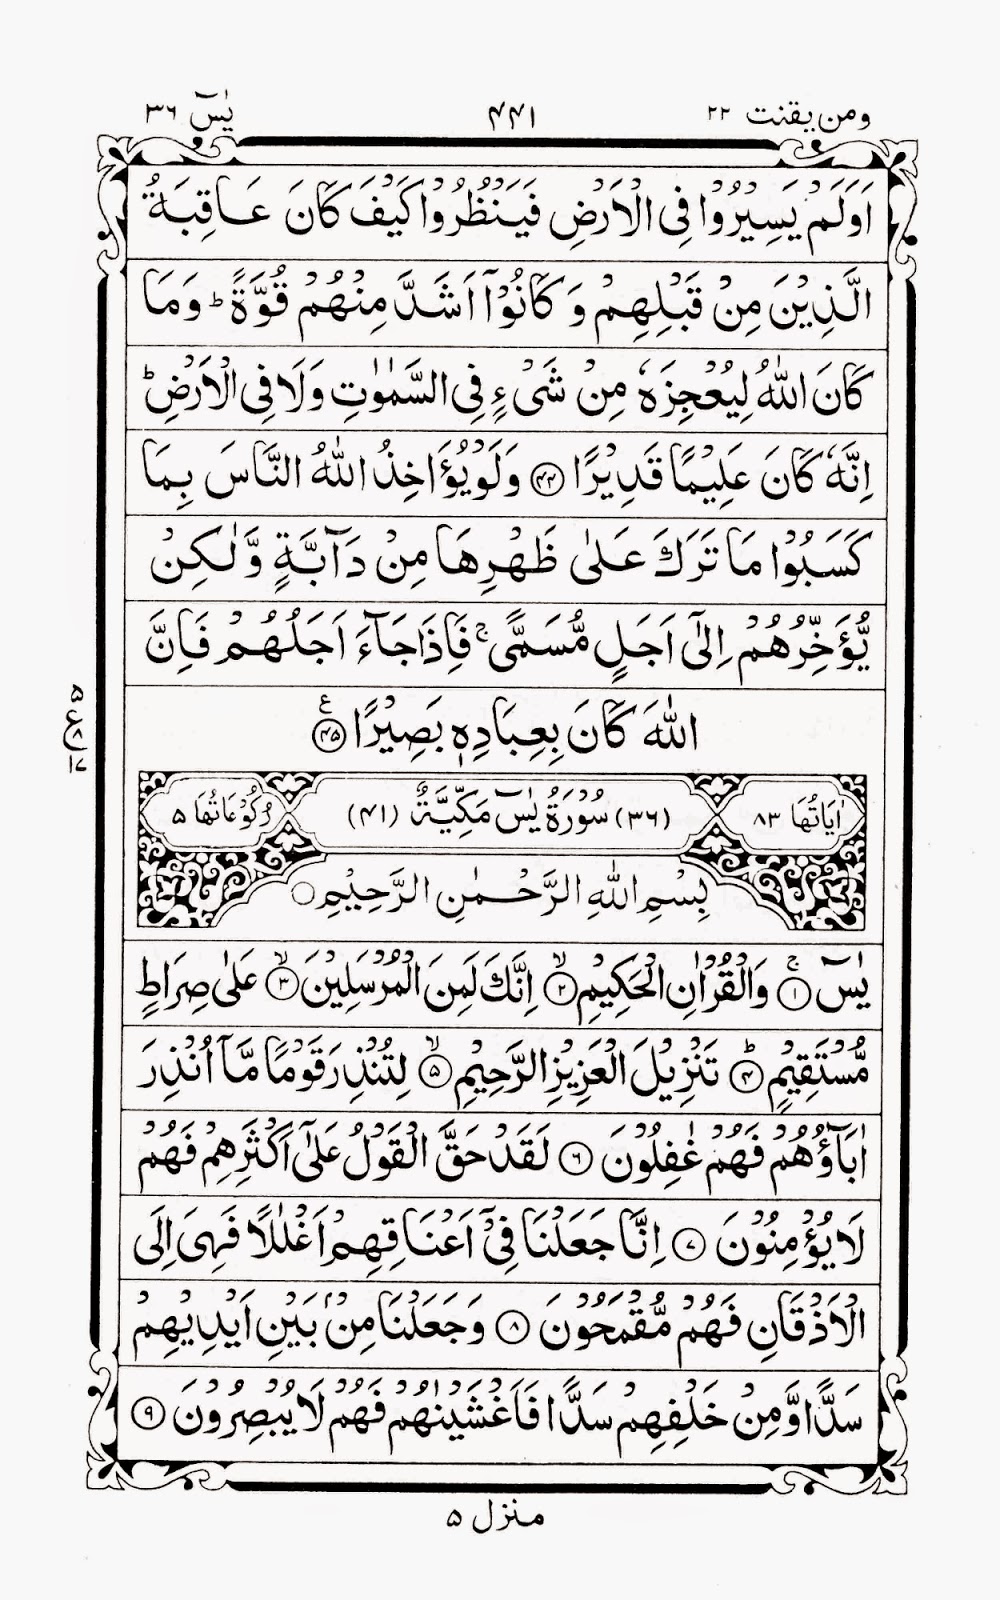 ومن یقنت ۲۲ ۴۴۱ یٰسٓ ۳۶
اَوَلَمْ یَسِیْرُوْا فِی الْاَرْضِ فَیَنْظُرُوْا كَیْفَ كَانَ عَاقِبَةُ
الَّذِیْنَ مِنْ قَبْلِهِمْ وَ كَانُوْۤا اَشَدَّ مِنْهُمْ قُوَّةً ؕ وَمَا
كَانَ اللّٰهُ لِیُعْجِزَهٗ مِنْ شَیْءٍ فِی السَّمٰوٰتِ وَلَا فِی الْاَرْضِ ؕ
اِنَّهٗ كَانَ عَلِیْمًا قَدِیْرًا ﴿۴۴﴾ وَلَوْ یُؤَاخِذُ اللّٰهُ النَّاسَ بِمَا
كَسَبُوْا مَا تَرَكَ عَلٰی ظَهْرِهَا مِنْ دَآبَّةٍ وَّلٰكِنْ
یُّؤَخِّرُهُمْ اِلٰۤی اَجَلٍ مُّسَمًّی ۚ فَاِذَا جَآءَ اَجَلُهُمْ فَاِنَّ
اللّٰهَ كَانَ بِعِبَادِهٖ بَصِیْرًا ﴿۴۵﴾ ع
اٰیَاتُهَا ۸۳ (۳۶) سُوْرَةُ یٰسٓ مَكِّیَّةٌ (۴۱) رُكُوْعَاتُهَا ۵
بِسْمِ اللّٰهِ الرَّحْمٰنِ الرَّحِیْمِ ○
یٰسٓ ۚ ﴿۱﴾ وَالْقُرْاٰنِ الْحَكِیْمِ ۙ ﴿۲﴾ اِنَّكَ لَمِنَ الْمُرْسَلِیْنَ ۙ ﴿۳﴾ عَلٰی صِرَاطٍ
مُّسْتَقِیْمٍ ؕ ﴿۴﴾ تَنْزِیْلَ الْعَزِیْزِ الرَّحِیْمِ ۙ ﴿۵﴾ لِتُنْذِرَ قَوْمًا مَّاۤ اُنْذِرَ
اٰبَآؤُهُمْ فَهُمْ غٰفِلُوْنَ ﴿۶﴾ لَقَدْ حَقَّ الْقَوْلُ عَلٰۤی اَكْثَرِهِمْ فَهُمْ
لَا یُؤْمِنُوْنَ ﴿۷﴾ اِنَّا جَعَلْنَا فِیْۤ اَعْنَاقِهِمْ اَغْلٰلًا فَهِیَ اِلَی
الْاَذْقَانِ فَهُمْ مُّقْمَحُوْنَ ﴿۸﴾ وَ جَعَلْنَا مِنْۢ بَیْنِ اَیْدِیْهِمْ
سَدًّا وَّمِنْ خَلْفِهِمْ سَدًّا فَاَغْشَیْنٰهُمْ فَهُمْ لَا یُبْصِرُوْنَ ﴿۹﴾
منزل ۵